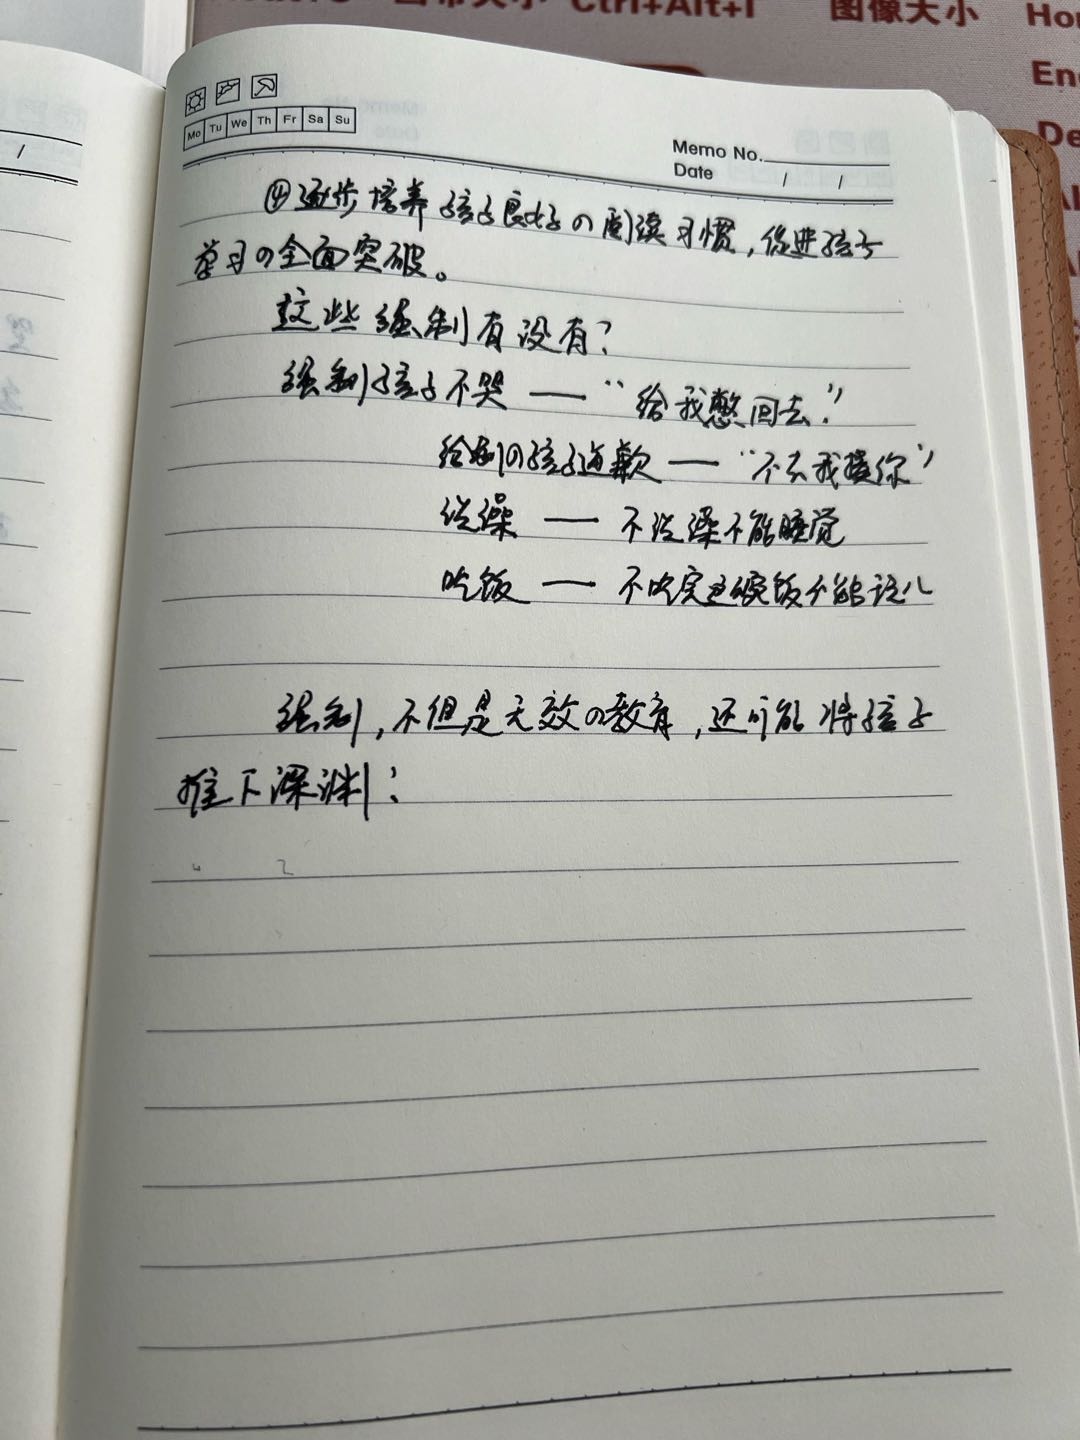 Ctrl+Alt+I 图像大小
Mo Tu We Th Fr Sa Su
Memo No.
Date / /
④逐步培养孩子良好の阅读习惯，促进孩子
学习の全面突破。
这些强制有没有？
强制孩子不哭 —— “给我憋回去！”
给别の孩子道歉 —— “不去我揍你”
洗澡 —— 不洗澡不能睡觉
吃饭 —— 不吃完这碗饭不能玩儿
强制，不但是无效の教育，还可能将孩子
推下深渊！